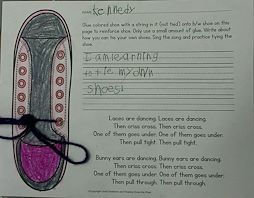 NAME Kennedy
Glue colored shoe with a string in it (not tied) onto b/w shoe on this
page to reinforce shoe. Only use a small amount of glue. Write about
how you can tie your own shoes. Sing the song and practice tying
the shoe.
I am learning
to tie my own
shoes!
Laces are dancing. Laces are dancing.
Then criss cross. Then criss cross.
One of them goes under. One of them goes under.
Then pull tight. Then pull tight.
Bunny ears are dancing. Bunny ears are dancing.
Then criss cross. Then criss cross.
One of them goes under. One of them goes under.
Then pull through. Then pull through.